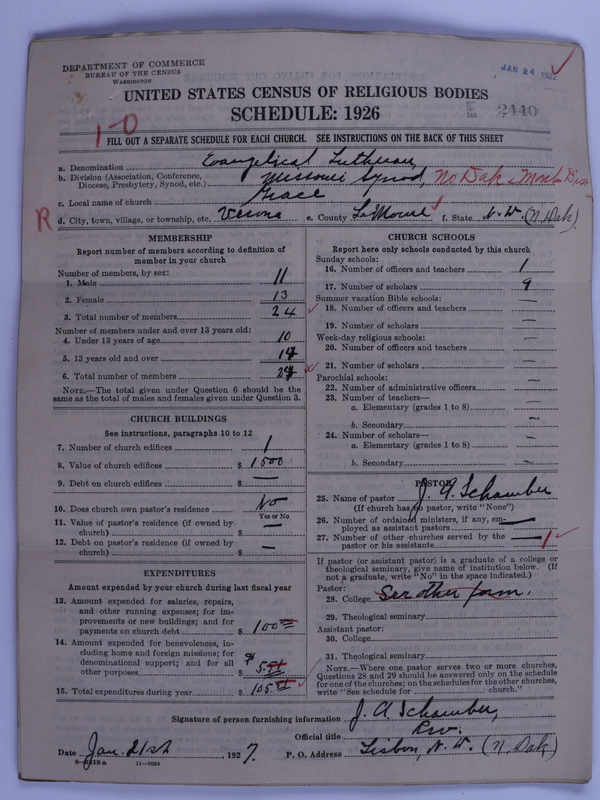 DEPARTMENT OF COMMERCE
BUREAU OF THE CENSUS
WASHINGTON
JAN 24 1927
UNITED STATES CENSUS OF RELIGIOUS BODIES
SCHEDULE: 1926
2440
1-0
FILL OUT A SEPARATE SCHEDULE FOR EACH CHURCH. SEE INSTRUCTIONS ON THE BACK OF THIS SHEET
a. Denomination Evangelical Lutheran
b. Division (Association, Conference, Diocese, Presbytery, Synod, etc.) Missouri Synod, No Dak & Mont Dist
c. Local name of church Grace
R d. City, town, village, or township, etc. Verona e. County LaMoure f. State N. D. (N. Dak)
MEMBERSHIP
Report number of members according to definition of member in your church
Number of members, by sex:
1. Male 11
2. Female 13
3. Total number of members 24
Number of members under and over 13 years old:
4. Under 13 years of age 10
5. 13 years old and over 14
6. Total number of members 24
NOTE.—The total given under Question 6 should be the same as the total of males and females given under Question 3.
CHURCH BUILDINGS
See instructions, paragraphs 10 to 12
7. Number of church edifices 1
8. Value of church edifices $ 1500
9. Debt on church edifices $ —
10. Does church own pastor's residence No
Yes or No
11. Value of pastor's residence (if owned by church) $ —
12. Debt on pastor's residence (if owned by church) $ —
EXPENDITURES
Amount expended by your church during last fiscal year
13. Amount expended for salaries, repairs, and other running expenses; for improvements or new buildings; and for payments on church debt $ 100
14. Amount expended for benevolences, including home and foreign missions; for denominational support; and for all other purposes $
15. Total expenditures during year $ 105
CHURCH SCHOOLS
Report here only schools conducted by this church
Sunday schools:
16. Number of officers and teachers 1
17. Number of scholars 9
Summer vacation Bible schools:
18. Number of officers and teachers —
19. Number of scholars —
Week-day religious schools:
20. Number of officers and teachers —
21. Number of scholars —
Parochial schools:
22. Number of administrative officers —
23. Number of teachers—
a. Elementary (grades 1 to 8) —
b. Secondary —
24. Number of scholars—
a. Elementary (grades 1 to 8) —
b. Secondary —
PASTOR
25. Name of pastor J. A. Schamber
(If church has no pastor, write "None")
26. Number of ordained ministers, if any, employed as assistant pastors —
27. Number of other churches served by the pastor or his assistants 1
If pastor (or assistant pastor) is a graduate of a college or theological seminary, give name of institution below. (If not a graduate, write "No" in the space indicated.)
Pastor:
28. College See other form.
29. Theological seminary
Assistant pastor:
30. College
31. Theological seminary
NOTE.—Where one pastor serves two or more churches, Questions 28 and 29 should be answered only on the schedule for one of the churches; on the schedules for the other churches, write "See schedule for church."
Signature of person furnishing information J. A. Schamber,
Official title Rev.
Date Jan. 21st 1927. P. O. Address Lisbon, N. D. (N. Dak)
11—9034